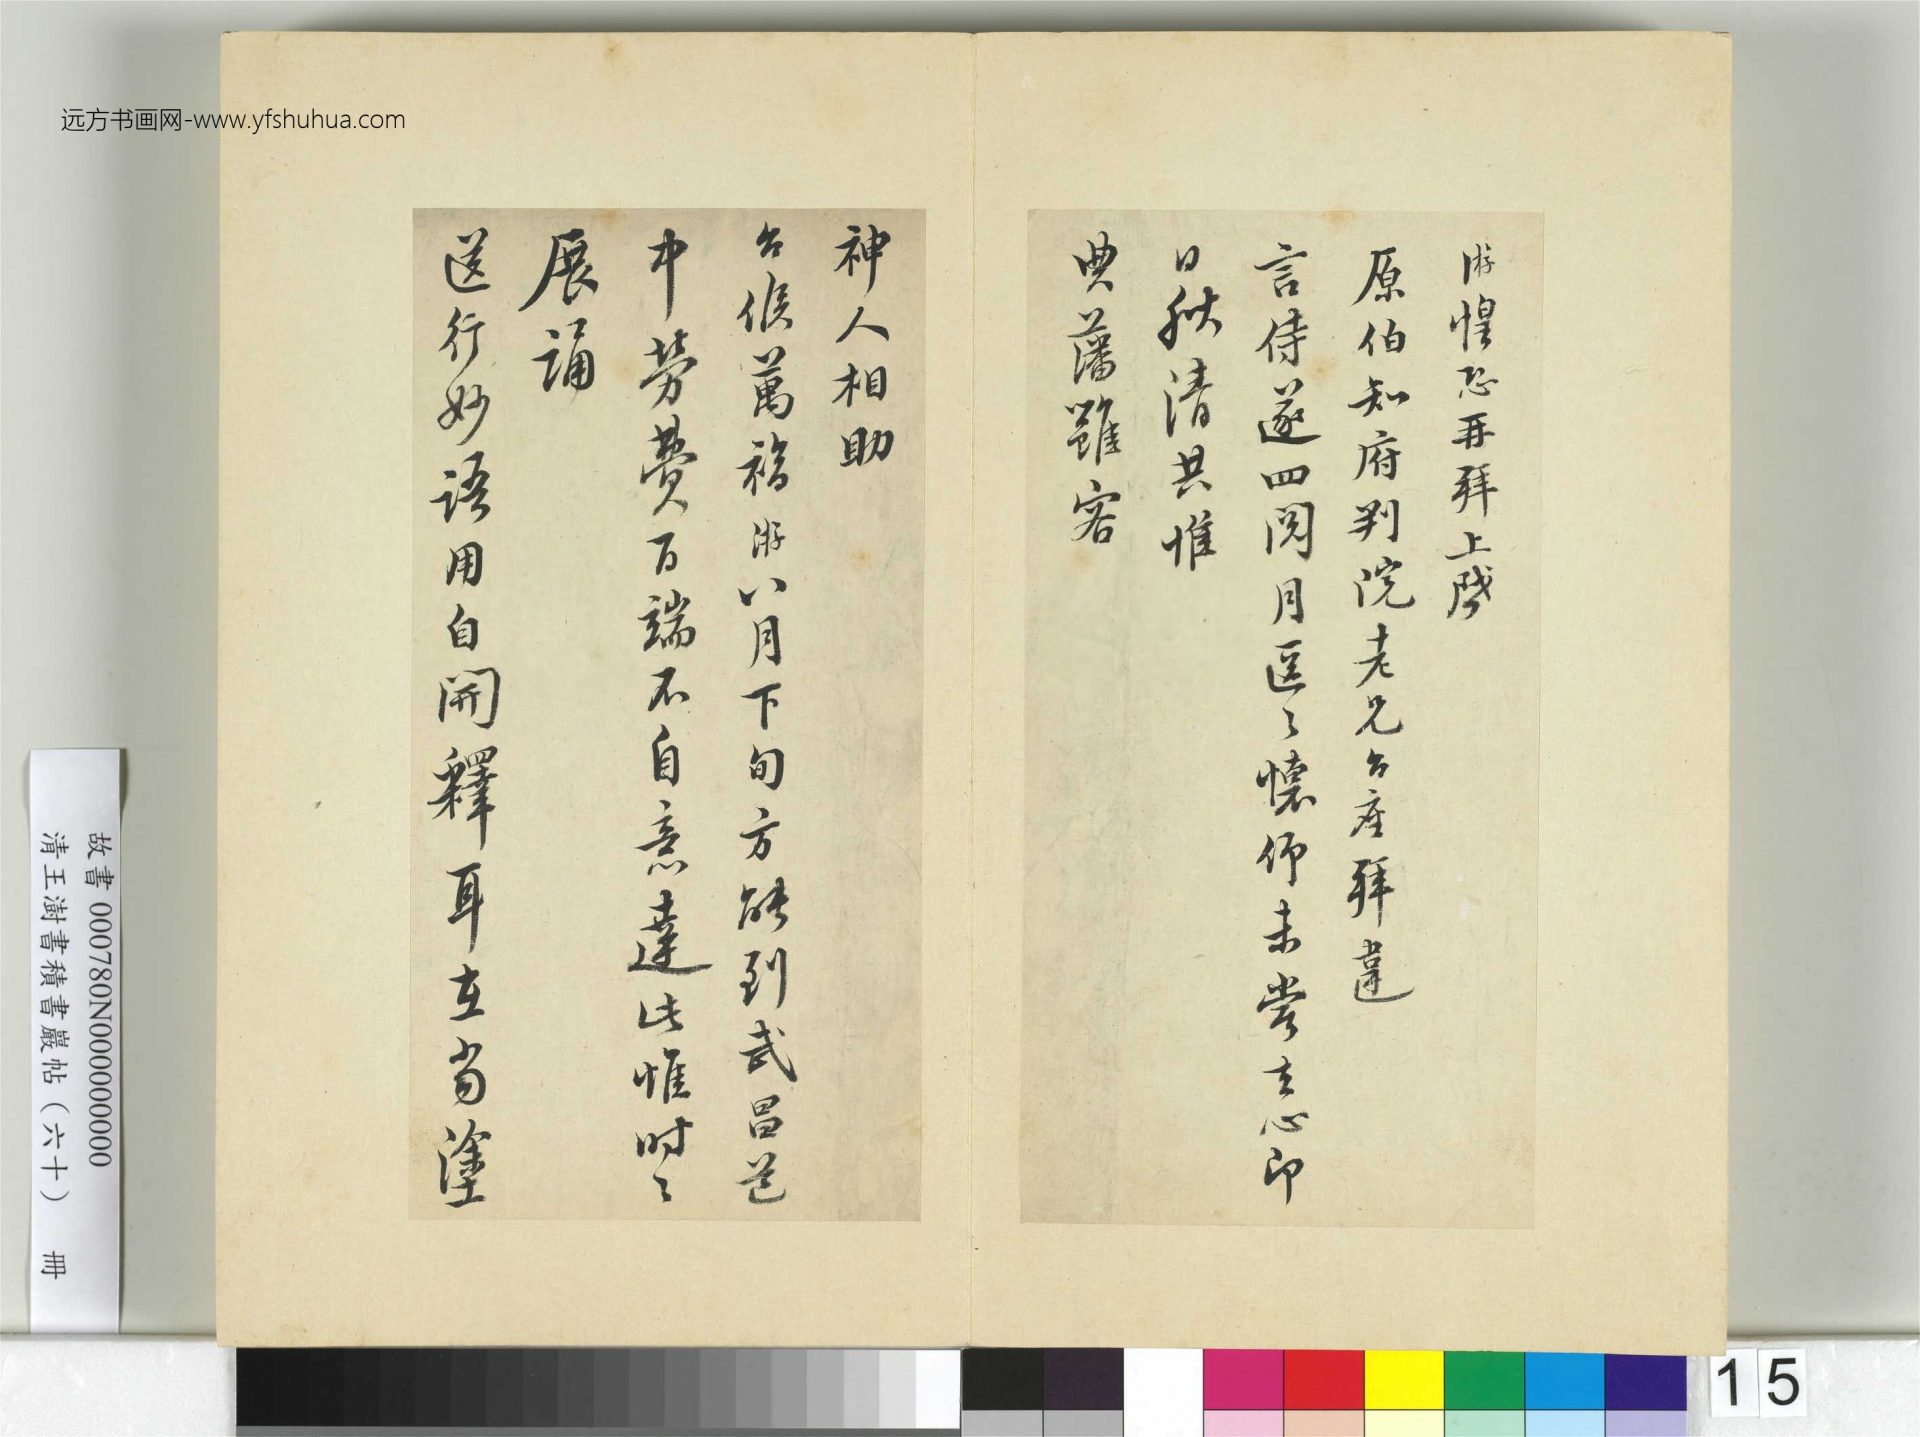 远方书画网-www.yfshuhua.com
游惶恐再拜上啓
原伯知府判院老兄台座拜違
言侍遂四閱月區〻懷仰未嘗去心即
日秋清共惟
典藩雖容
神人相助
台候萬福游八月下旬方能到武昌道
中勞費百端不自意達此惟時〻
展誦
送行妙語用自開釋耳在當塗
故書 000780N000000000
清王澍書積書巖帖(六十) 冊
15